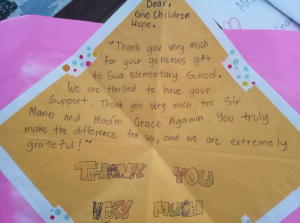 Dear,
Give Children
Hope.
"Thank you very much
for your generous gift
to Sua Elementary School.
We are thrilled to have your
Support. Thank you very much to Sir
Mario and Ma'am Grace Agawin. You truly
make the difference for us, and we are extremely
grateful!"
THANK YOU
VERY MUCH